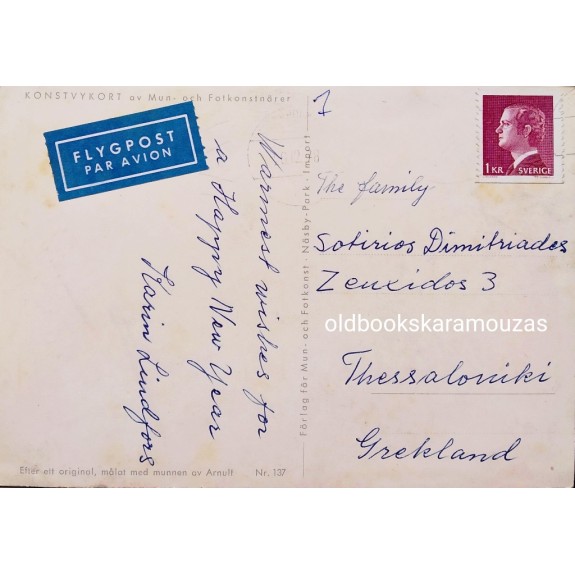 KONSTVYKORT av Mun- och Fotkonstnärer
FLYGPOST
PAR AVION
Warmest wishes for
a Happy New Year
Karin Lindfors
Efter ett original, målat med munnen av Arnult Nr. 137
Förlag för Mun- och Fotkonst · Näsby-Park · Import
7
1 KR SVERIGE
The family
Sotirios Dimitriades
Zeuxidos 3
oldbookskaramouzas
Thessaloniki
Grekland